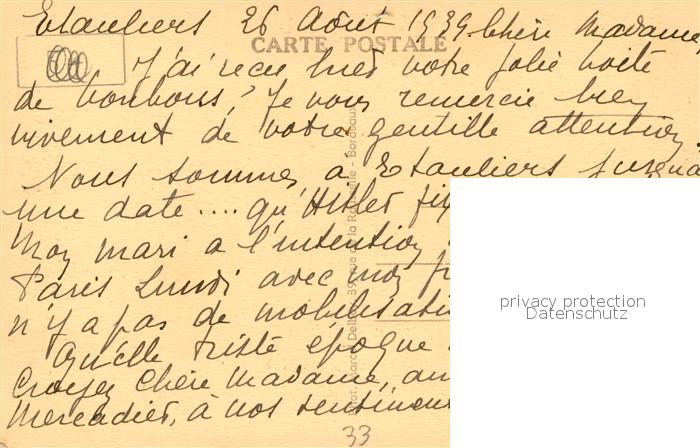 Etauliers 26 Août 1939. Chère Madame,
CARTE POSTALE
J'ai reçu hier votre jolie boîte
de bonbons, Je vous remercie bien
vivement de votre gentille attention.
Nous sommes à Etauliers jusqu'à
une date .... qu'Hitler fix
Mon mari a l'intention
Paris Lundi avec mon
n'y a pas de mobilisati
Qu'elle triste époque
Croyez Chère Madame,
Mercadier, à nos sentiments
33
privacy protection
Datenschutz